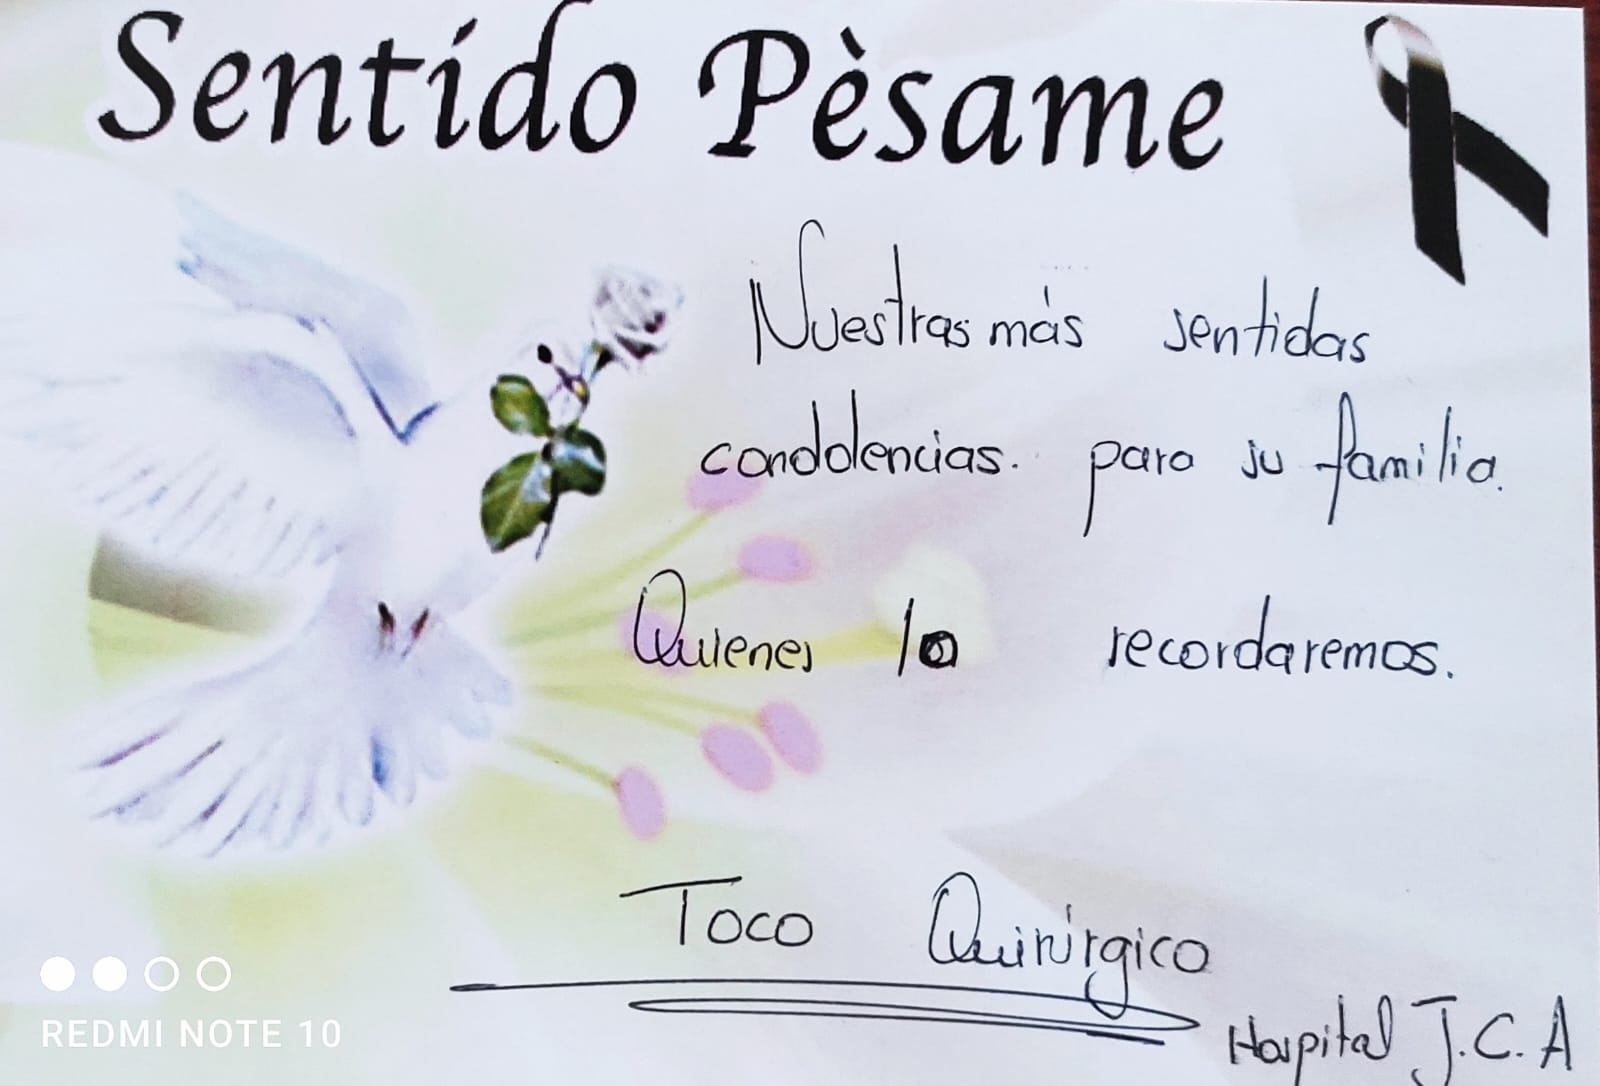 Sentido Pèsame
Nuestras más sentidas
condolencias. para su familia.
Quienes lo recordaremos.
Toco Quirúrgico
Hospital J.C.A
REDMI NOTE 10